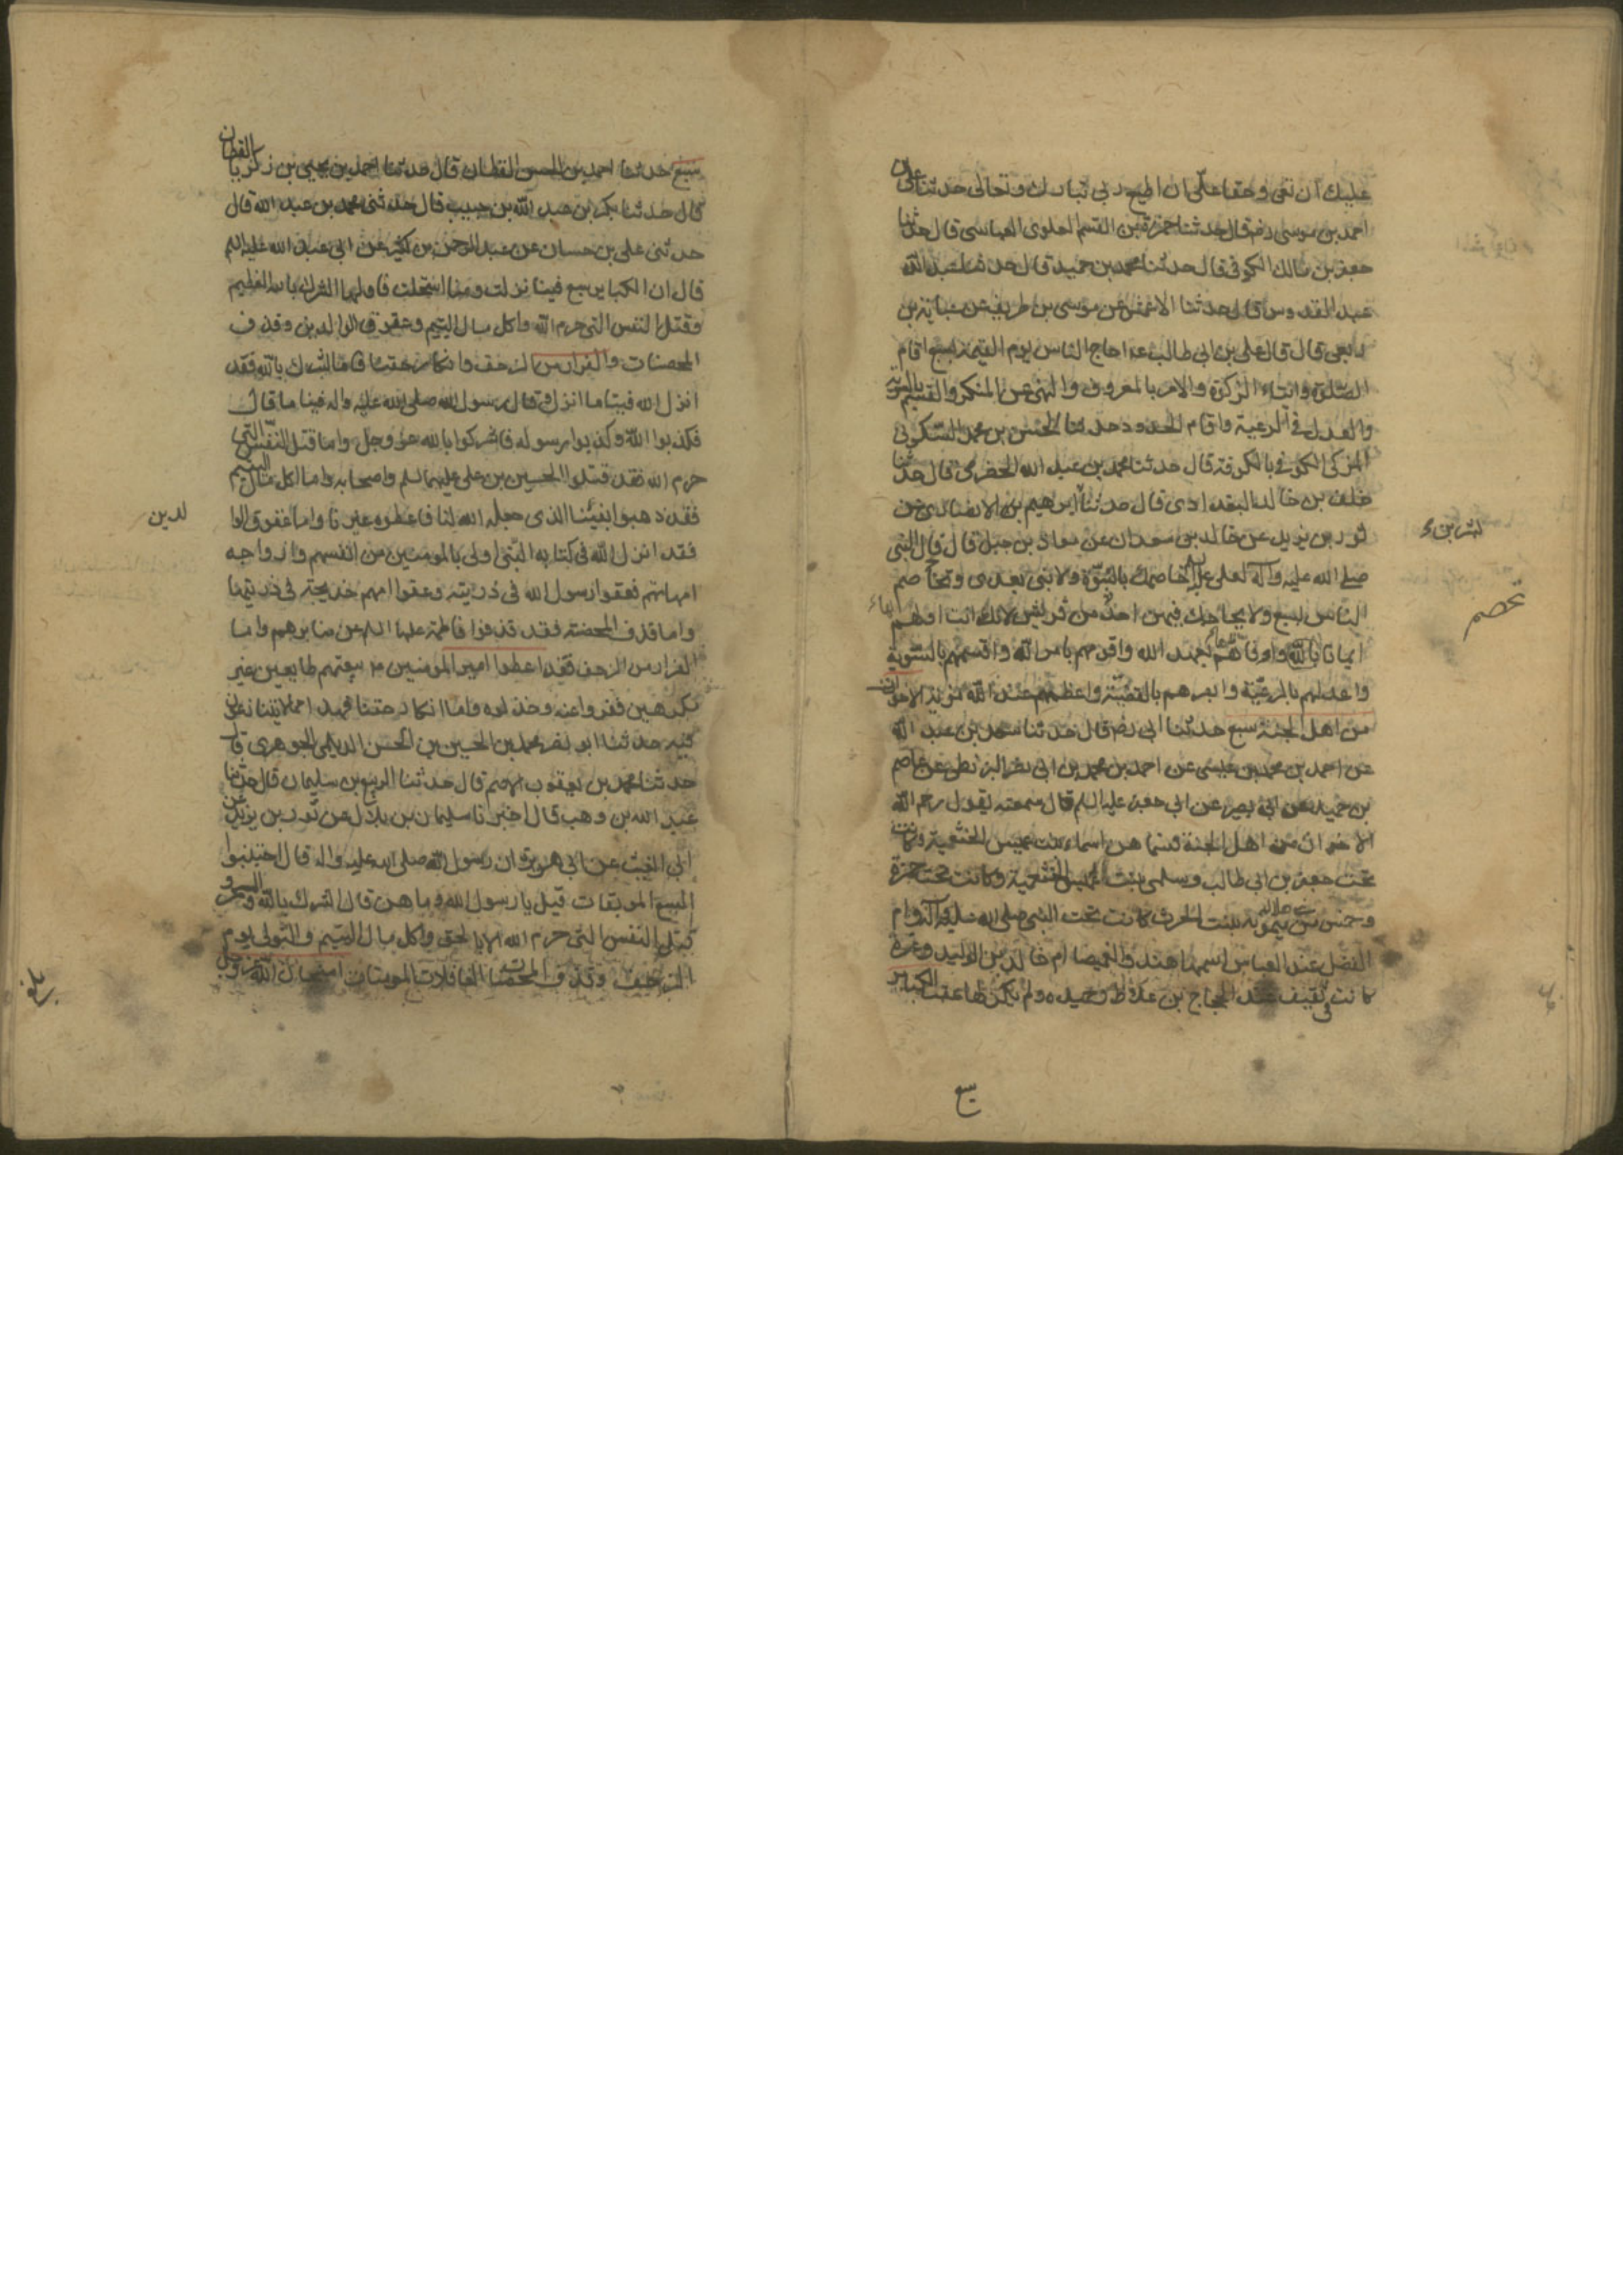 عليك ان تعي وحقا علي ان اطيع ربي تبارك وتعالى حدثنا علي بن
احمد بن موسى رضه قال حدثنا حمزة بن القسم العلوي العباسي قال حدثنا
جعفر بن مالك الكوفي قال حدثنا محمد بن حميد قال حدثنا عبد الله
عبد القدوس قال حدثنا الاعمش عن موسى بن طريف عن عباية بن
ربعي قال قال علي بن ابي طالب ع احاج الناس يوم القيمة بسبع اقام
الصلوة وايتاء الزكوة والامر بالمعروف والنهي عن المنكر والقسم بالسوية
والعدل في الرعية واقام الحدود حدثنا الحسن بن محمد السكوني
المزكى الكوفي بالكوفة قال حدثنا محمد بن عبد الله الحضرمي قال حدثنا
خلف بن خالد البغدادي قال حدثنا ابرهيم بن الانصاري عن
ثور بن يزيد عن خالد بن معدان عن معاذ بن جبل قال قال النبي
صلى الله عليه وآله لعلي ع اخاصمك بالنبوة ولا نبي بعدي وتخاصم
الناس بسبع ولا يحاجك فيهن احد من قريش لانك انت اولهم
ايمانا بالله واوفاهم بعهد الله واقومهم بامر الله واقسمهم بالسوية
واعدلهم بالرعية وابصرهم بالقضية واعظمهم عند الله مزية الاخوات
من اهل الجنة سبع حدثنا ابي رضه قال حدثنا سعد بن عبد الله
عن احمد بن محمد بن عيسى عن احمد بن محمد بن ابي نصر البزنطي عن عاصم
بن حميد عن ابي بصير عن ابي جعفر عليه السلم قال سمعته يقول رحم الله
الاخوات من اهل الجنة فسماهن اسماء بنت عميس الخثعمية وكانت
تحت جعفر بن ابي طالب وسلمى بنت عميس الخثعمية وكانت تحت حمزة
وخمس من بني هلال ميمونة بنت الحرث كانت تحت النبي صلى الله عليه وآله وام
الفضل عند العباس اسمها هند والغميصا ام خالد بن الوليد وعزة
كانت في ثقيف عند الحجاج بن علاط وحميده ولم يكن لها عقب الكباير
تخصم
سبع
سبع حدثنا احمد بن الحسن القطان قال حدثنا احمد بن يحيى بن زكريا القطان
قال حدثنا بكر بن عبد الله بن حبيب قال حدثني محمد بن عبد الله قال
حدثني علي بن حسان عن عبد الرحمن بن كثير عن ابي عبد الله عليه السلم
قال ان الكباير سبع فينا نزلت ومنا استحلت فاولها الشرك بالله العظيم
وقتل النفس التي حرم الله واكل مال اليتيم وعقوق الوالدين وقذف
المحصنات والفرار من الزحف وانكار حقنا فاما الشرك بالله فقد
انزل الله فينا ما انزل وقال رسول الله صلى الله عليه واله فينا ما قال
فكذبوا الله وكذبوا رسوله فاشركوا بالله عز وجل واما قتل النفس التي
حرم الله فقد قتلوا الحسين بن علي عليهما السلم واصحابه واما اكل مال اليتيم
فقد ذهبوا بفيئنا الذي جعله الله لنا فاعطوه غيرنا واما عقوق الوا
لدين
فقد انزل الله في كتابه النبي اولى بالمومنين من انفسهم وازواجه
امهاتهم فعقوا رسول الله في ذريته وعقوا امهم خديجة في ذريتها
واما قذف المحصنة فقد قذفوا فاطمة عليها السلم على منابرهم واما
الفرار من الزحف فقد اعطوا امير المومنين ع بيعتهم طايعين غير
مكرهين ففروا عنه وخذلوه واما انكار حقنا فهذا مما لا يتنازعون
فيه حدثنا ابو نصر محمد بن الحسين بن الحسن الديلمي الجوهري قال
حدثنا محمد بن يعقوب الاصم قال حدثنا الربيع بن سليمان قال حدثنا
عبد الله بن وهب قال اخبرنا سليمان بن بلال عن ثور بن يزيد عن
ابي الغيث عن ابي هريرة ان رسول الله صلى الله عليه واله قال اجتنبوا
السبع الموبقات قيل يا رسول الله وما هن قال الشرك بالله والسحر و
قتل النفس التي حرم الله الا بالحق واكل مال اليتيم والتولي يوم
الزحف وقذف المحصنات الغافلات المومنات امتحان الله عز وجل
بلغ